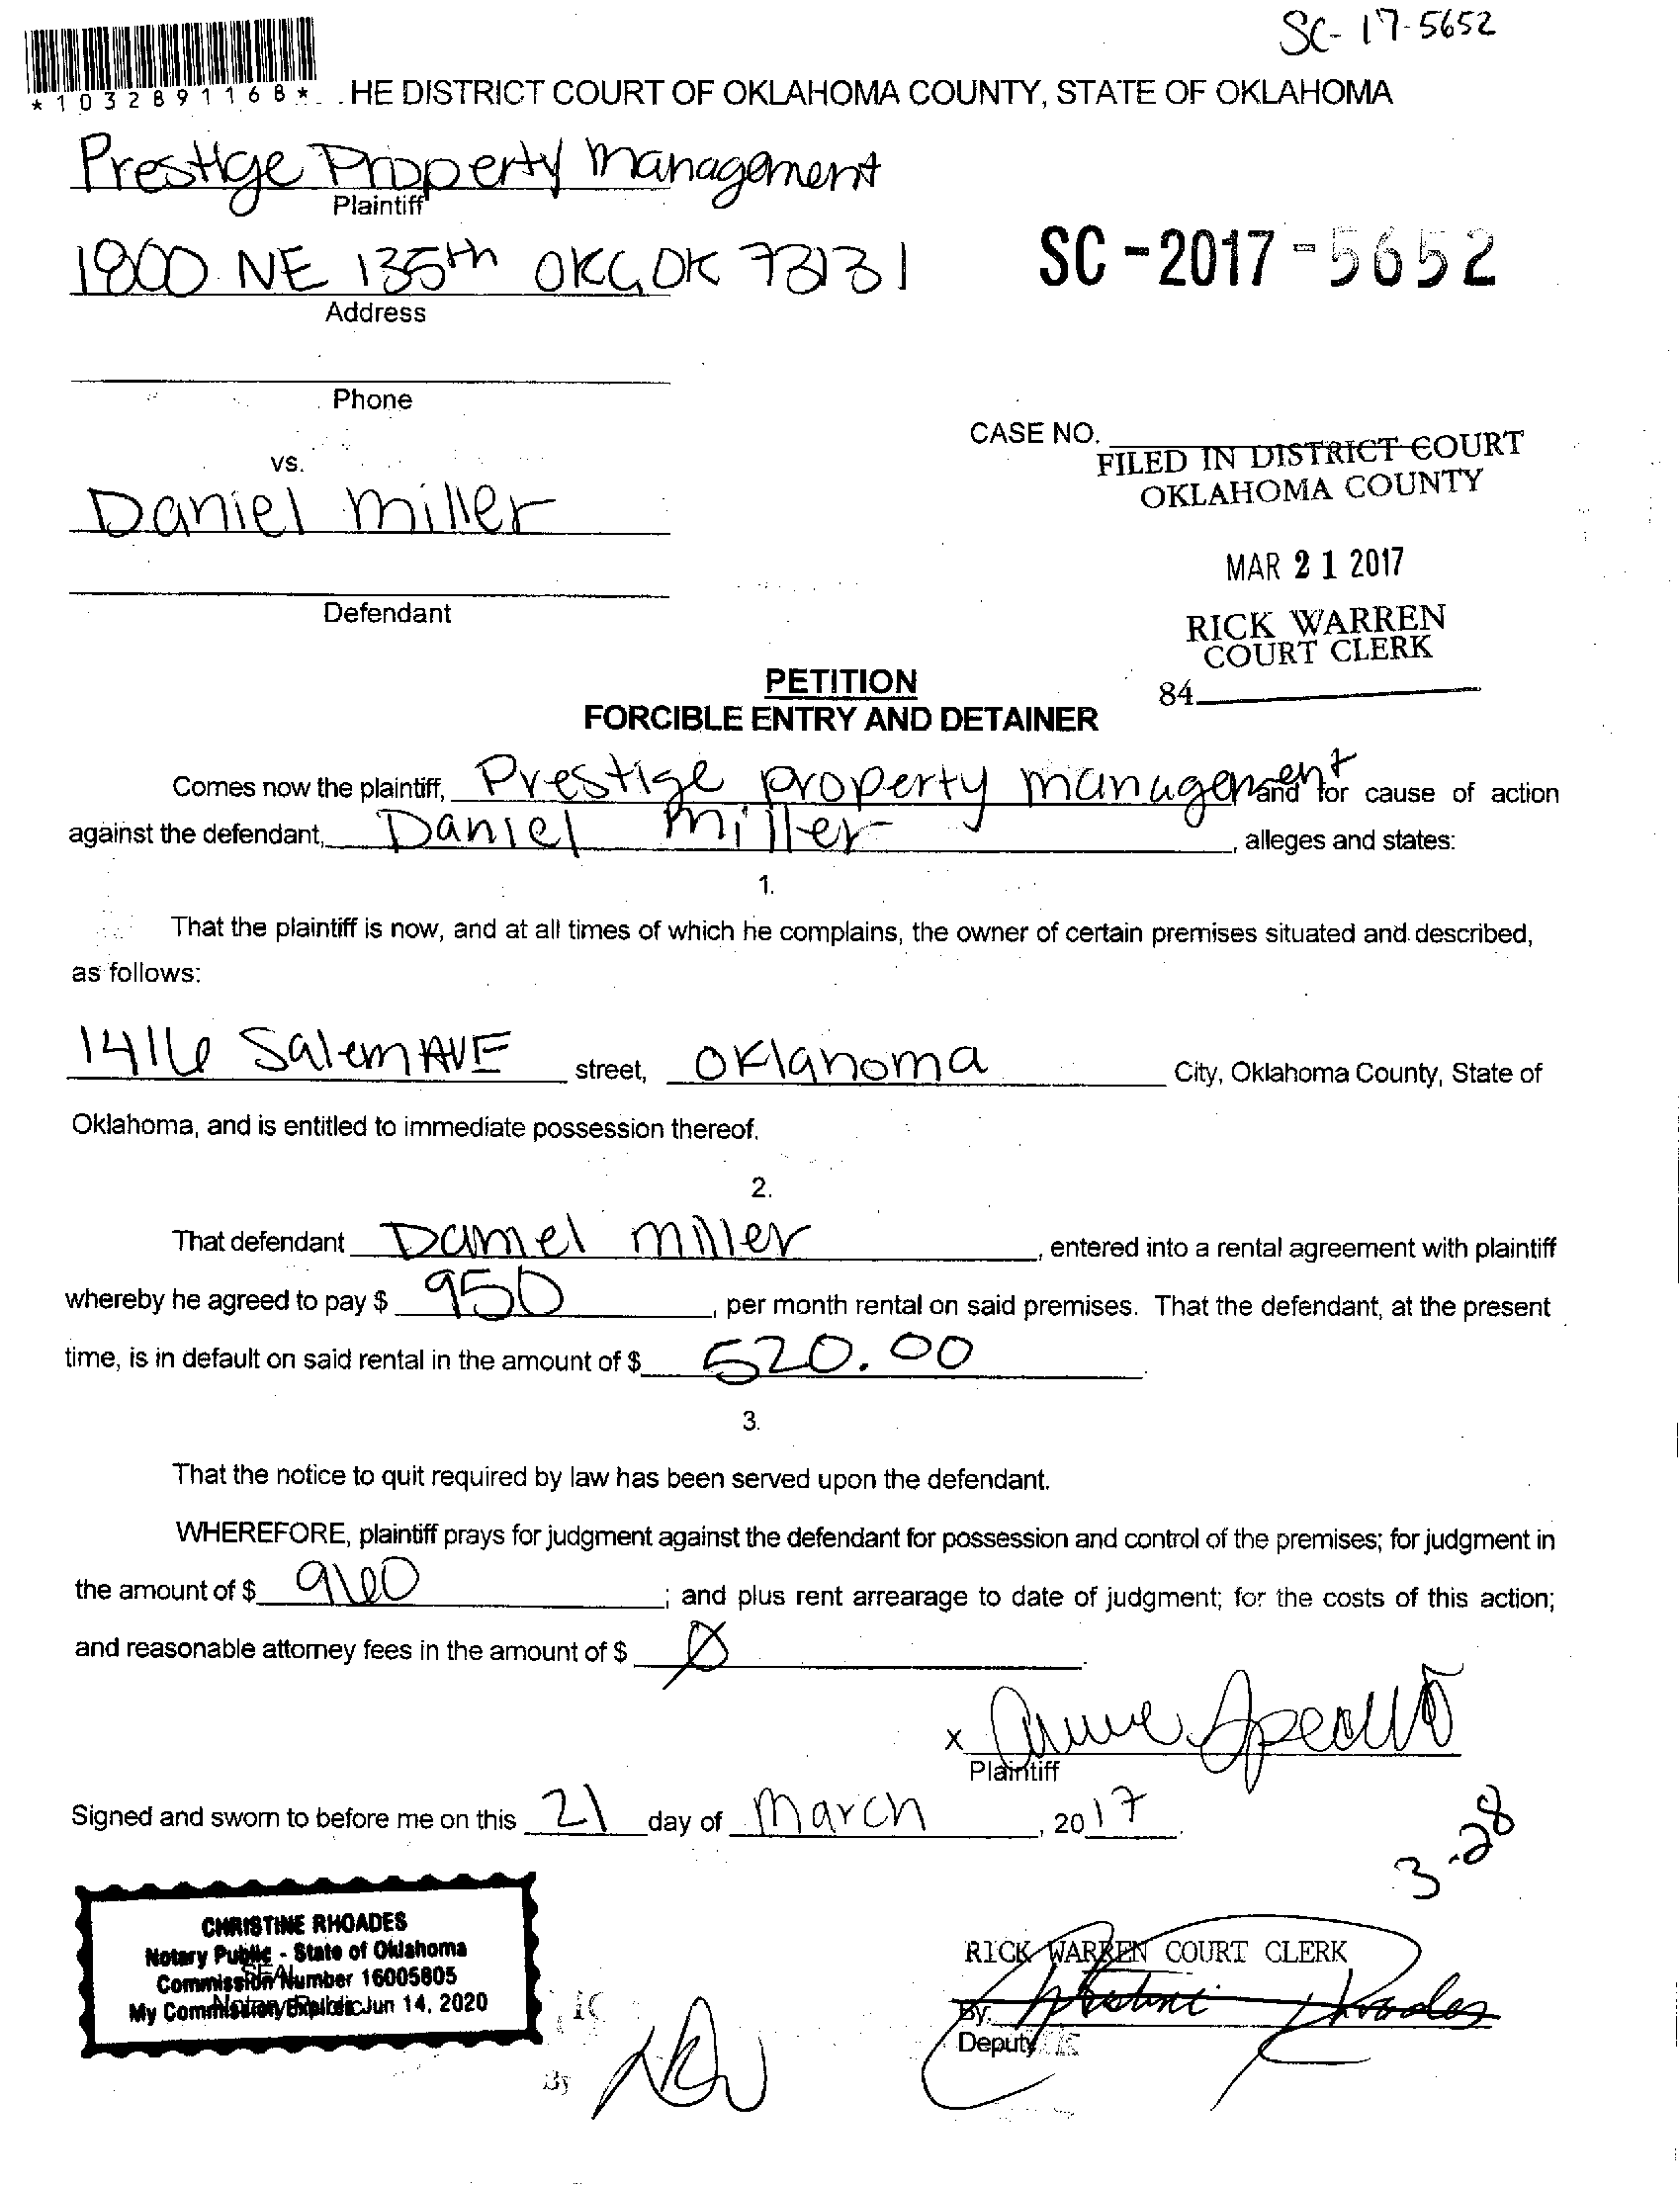 SC-17-5652
*1032891168*
HE DISTRICT COURT OF OKLAHOMA COUNTY, STATE OF OKLAHOMA
Prestige Property Management
Plaintiff
1800 NE 135th OKC, OK 73131
Address
SC-2017-5652
Phone
CASE NO.
FILED IN DISTRICT COURT
OKLAHOMA COUNTY
vs.
Daniel Miller
MAR 21 2017
Defendant
RICK WARREN
COURT CLERK
84
PETITION
FORCIBLE ENTRY AND DETAINER
Comes now the plaintiff, Prestige property management and for cause of action
against the defendant, Daniel Miller, alleges and states:
1.
That the plaintiff is now, and at all times of which he complains, the owner of certain premises situated and described,
as follows:
1416 Salem AVE street, Oklahoma City, Oklahoma County, State of
Oklahoma, and is entitled to immediate possession thereof.
2.
That defendant Daniel Miller, entered into a rental agreement with plaintiff
whereby he agreed to pay $ 950, per month rental on said premises. That the defendant, at the present
time, is in default on said rental in the amount of $ 520.00
3.
That the notice to quit required by law has been served upon the defendant.
WHEREFORE, plaintiff prays for judgment against the defendant for possession and control of the premises; for judgment in
the amount of $ 960; and plus rent arrearage to date of judgment; for the costs of this action;
and reasonable attorney fees in the amount of $ Ø
x
Plaintiff
Signed and sworn to before me on this 21 day of March, 2017
3-28
CHRISTINE RHOADES
Notary Public - State of Oklahoma
Commission Number 16005805
My Commission Expires Jun 14, 2020
SEAL
Notary Public
RICK WARREN COURT CLERK
By Christine Rhoades
Deputy
By